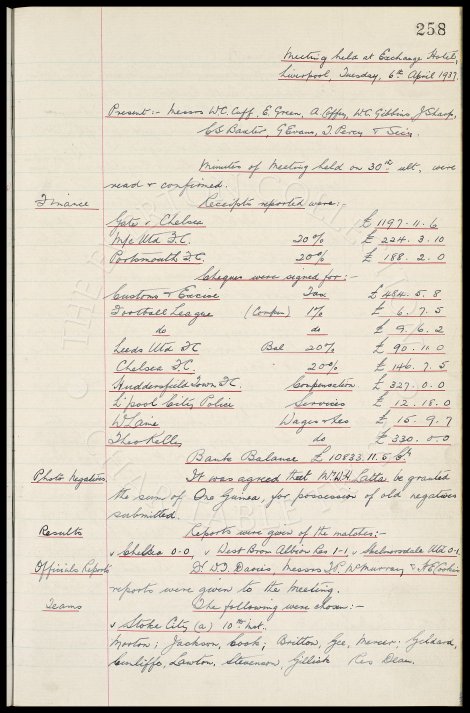 258
Meeting held at Exchange Hotel,
Liverpool, Tuesday, 6th April 1937.
Present:- Messrs W.C. Cuff, E. Green, A. Coffey, W.C. Gibbins, J. Sharp,
C.S. Baxter, G. Evans, T. Percy & Sec'y.
Minutes of Meeting held on 30th ult. were
read & confirmed.
Finance Receipts reported were:-
Gate v. Chelsea £ 1197. 11. 6
M/c Utd F.C. 20% £ 224. 3. 10
Portsmouth F.C. 20% £ 188. 2. 0
Cheques were signed for:-
Customs & Excise Tax £ 484. 5. 8
Football League 1% £ 6. 7. 5
do do £ 9. 6. 2
Leeds Utd F.C. Bal 20% £ 90. 11. 0
Chelsea F.C. 20% £ 146. 7. 5
Huddersfield Town F.C. Compensation £ 327. 0. 0
L'pool City Police Services £ 12. 18. 0
W. Laine Wages & es £ 15. 9. 7
Theo Kelly do £ 330. 0. 0
Bank Balance £ 10833. 11. 5
Photo Negatives It was agreed that Mr W.H. Latta be granted
the sum of One Guinea, for possession of old negatives
submitted.
Results Reports were given of the matches:-
v Chelsea 0-0, v West Brom Albion Res 1-1, v Skelmersdale Utd 0-1.
Officials Reports Dr. D.T. Davies Messrs McMurray & H.E. Cooke's
reports were given to the Meeting.
Teams The following were chosen:-
v Stoke City (a) 10th inst.
Morton; Jackson, Cook; Britton, Gee, Mercer; Geldard,
Cunliffe, Lawton, Stevenson, Gillick Res Dean.